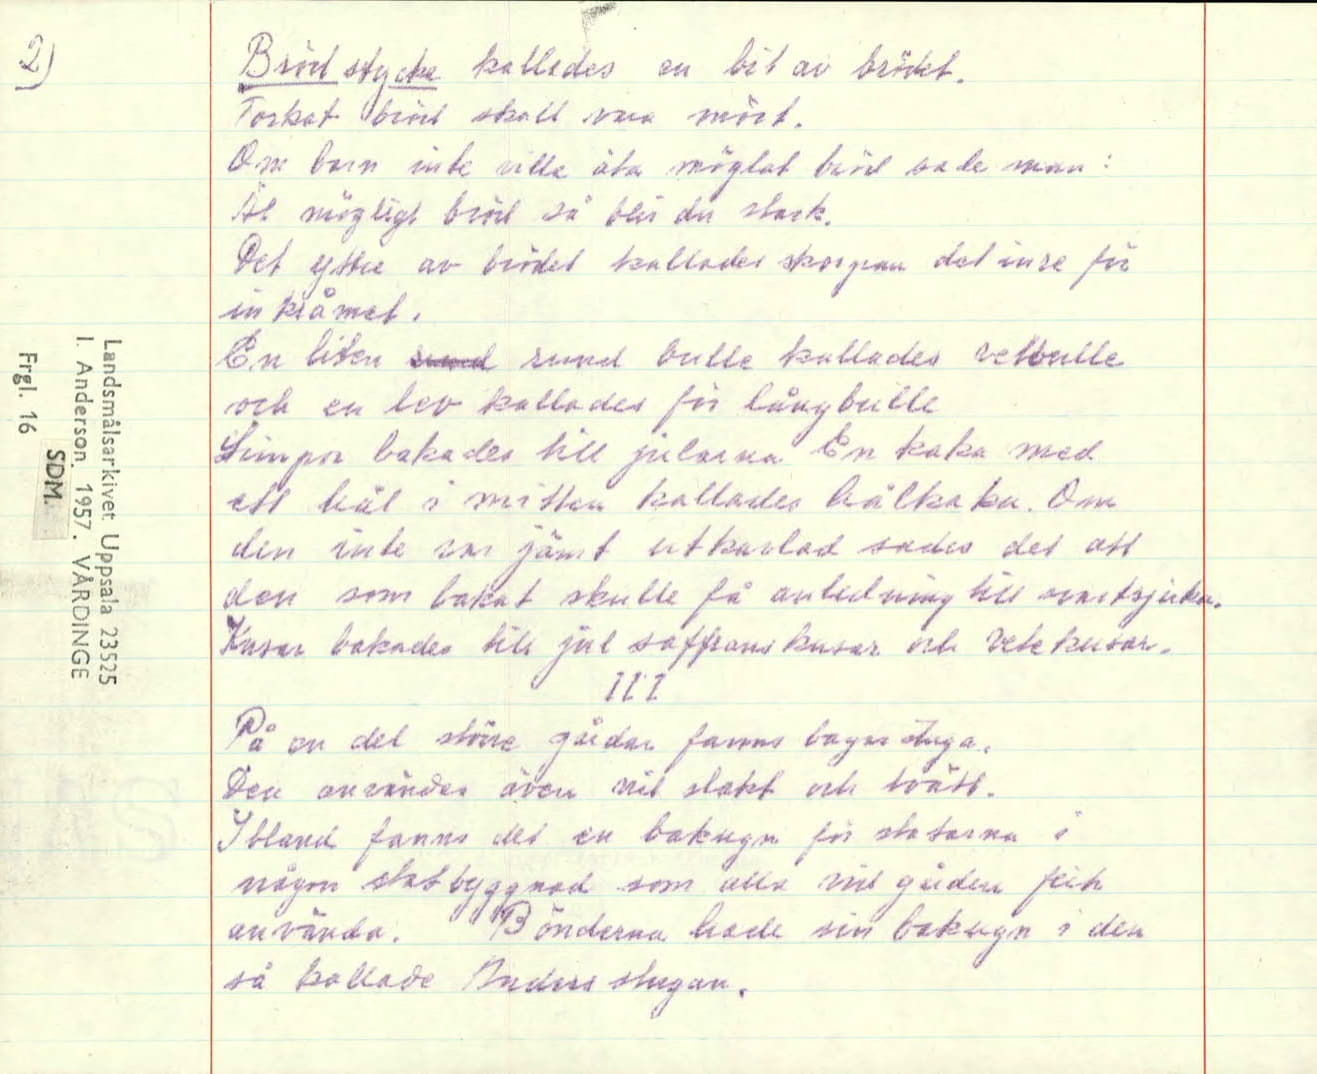 2)
Brödstycke kallades en bit av brödet.
Torkat bröd skall vara mört.
Om barn inte ville äta möglat bröd sade man:
Ät mögligt bröd så blir du stark.
Det yttre av brödet kallades skorpan det inre för
inkråmet.
En liten rund rund bulle kallades vetbulle
och en lev kallades för långbulle
Limpor bakades till jularna En kaka med
ett hål i mitten kallades hålkaka. Om
den inte var jämt utkavlad sades det att
den som bakat skulle få anledning till svartsjuka.
Kusar bakades till jul saffranskusar och vetekusar.
III
På en del större gårdar fanns bagarstuga.
Den användes även vid slakt och tvätt.
Ibland fanns det en bakugn för statarna i
någon statbyggnad som alla vid gården fick
använda. Bönderna hade sin bakugn i den
så kallade Anders stugan.
Landsmålsarkivet Uppsala 23525
I. Anderson. 1957. VÅRDINGE
Frgl. 16
SDM.